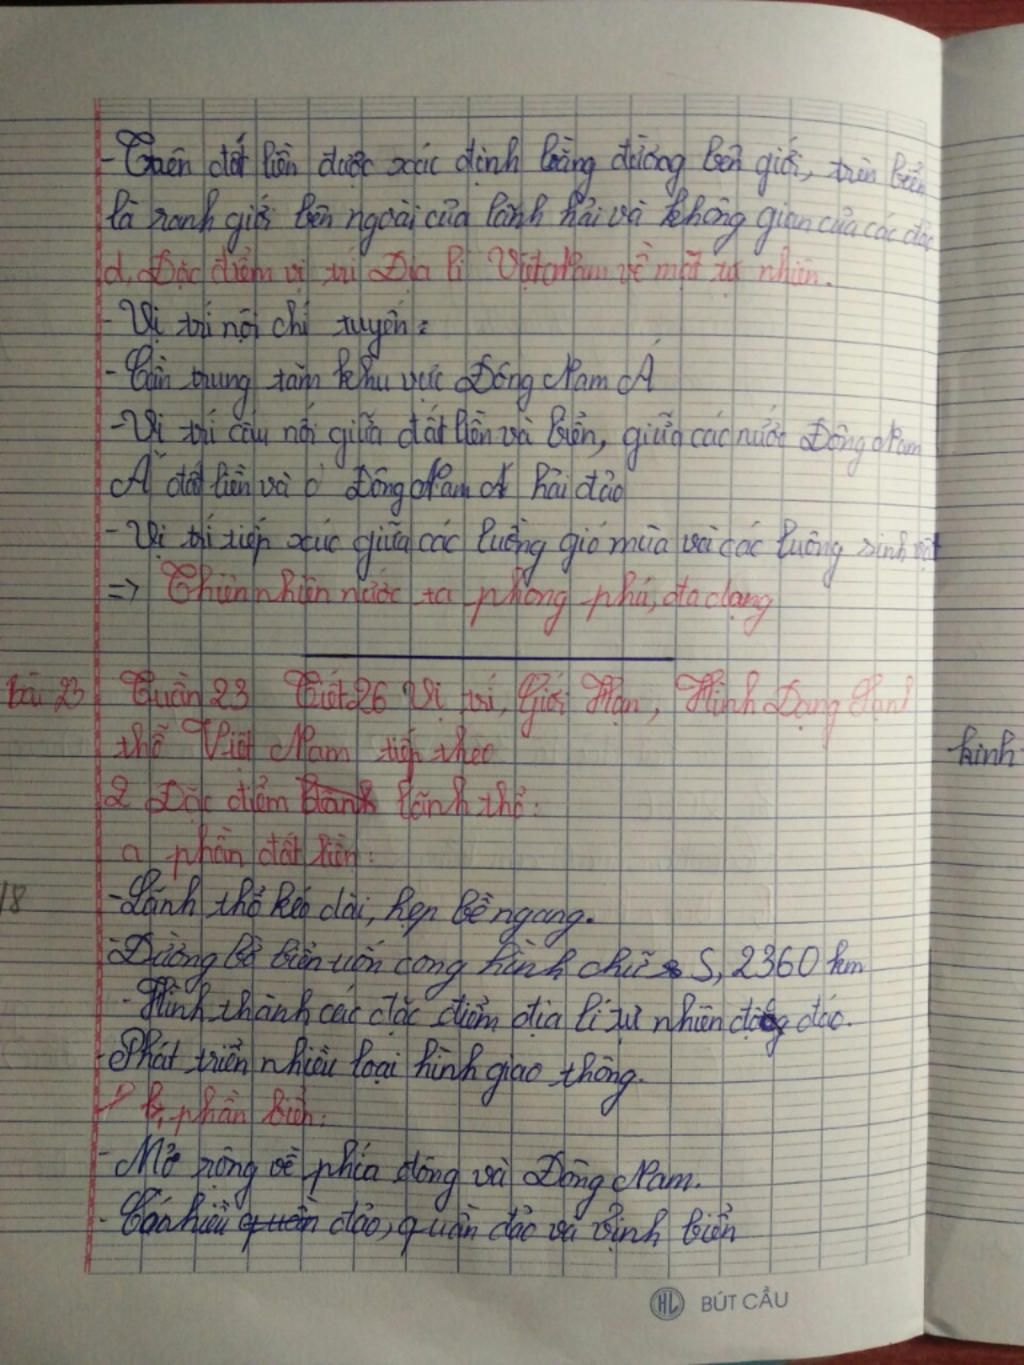 - Trên đất liền được xác định bằng đường biên giới, trên biển
là ranh giới bên ngoài của lãnh hải và không gian của các đảo
d, Đặc điểm vị trí Địa lí Việt Nam về mặt tự nhiên.
- Vị trí nội chí tuyến:
- Gần trung tâm khu vực Đông Nam Á
- Vị trí cầu nối giữa đất liền và biển, giữa các nước Đông Nam
Á đất liền và ở Đông Nam Á hải đảo
- Vị trí tiếp xúc giữa các luồng gió mùa và các luồng sinh vật
=> Thiên nhiên nước ta phong phú, đa dạng
Bài 23 Tuần 23 Tiết 26 Vị trí, Giới Hạn, Hình Dạng Lãnh
thổ Việt Nam tiếp theo
2 Đặc điểm lãnh thổ:
a phần đất liền:
18
- Lãnh thổ kéo dài, hẹp bề ngang.
- Đường bờ biển uốn cong hình chữ S, 2360 km
- Hình thành các đặc điểm địa lí tự nhiên độc đáo.
- Phát triển nhiều loại hình giao thông.
b, phần biển:
- Mở rộng về phía đông và Đông Nam.
- Có nhiều đảo, quần đảo và vịnh biển
kinh
HL BÚT CẦU